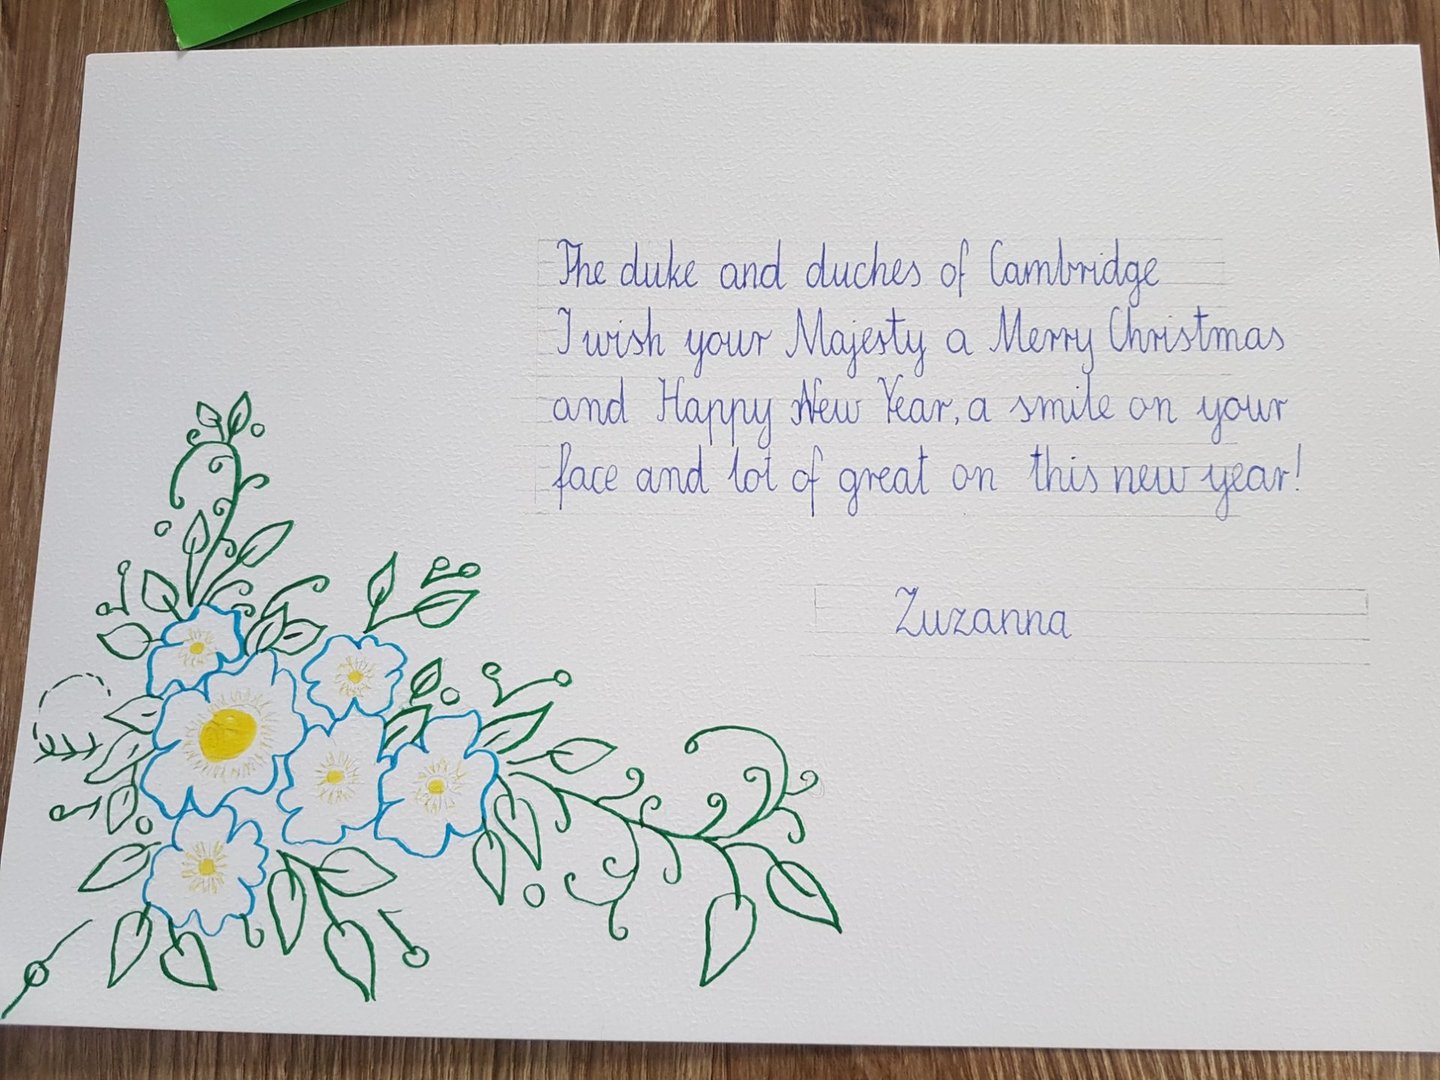 The duke and duches of Cambridge
I wish your Majesty a Merry Christmas
and Happy New Year, a smile on your
face and lot of great on this new year!
Zuzanna